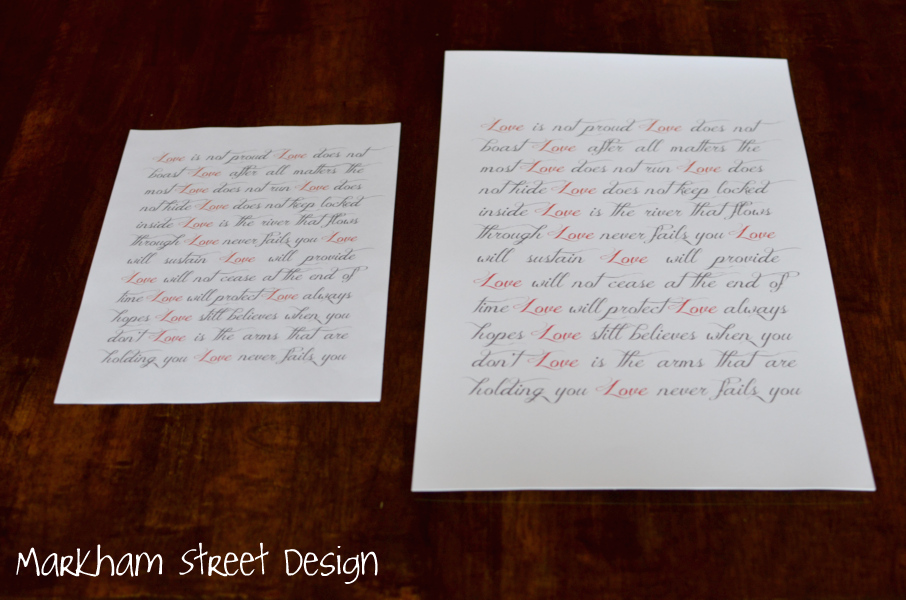 Love is not proud Love does not
boast Love after all matters the
most Love does not run Love does
not hide Love does not keep locked
inside Love is the river that flows
through Love never fails you Love
will sustain Love will provide
Love will not cease at the end of
time Love will protect Love always
hopes Love still believes when you
don't Love is the arms that are
holding you Love never fails you
Love is not proud Love does not
boast Love after all matters the
most Love does not run Love does
not hide Love does not keep locked
inside Love is the river that flows
through Love never fails you Love
will sustain Love will provide
Love will not cease at the end of
time Love will protect Love always
hopes Love still believes when you
don't Love is the arms that are
holding you Love never fails you
Markham Street Design